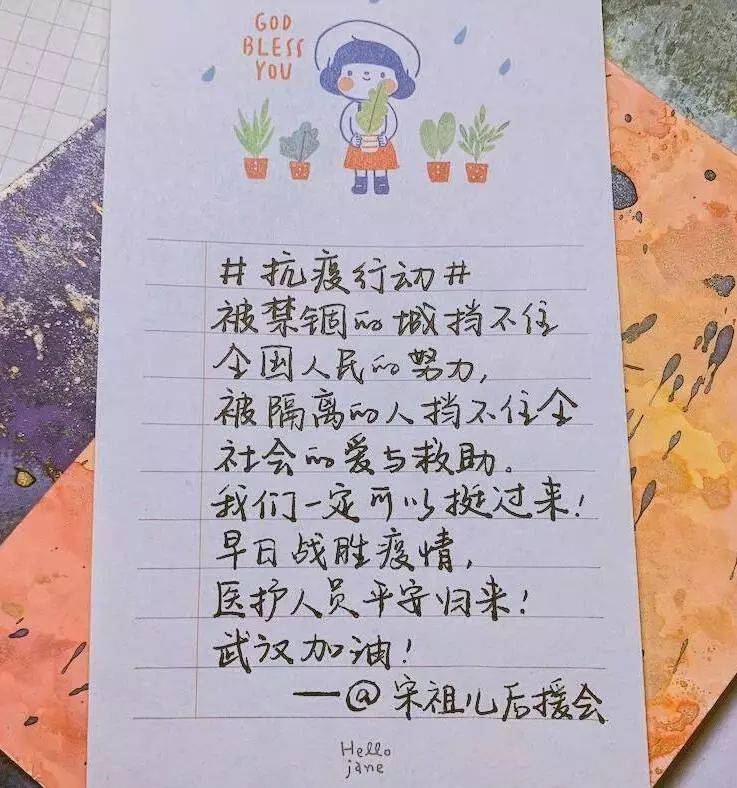 GOD
BLESS
YOU
#抗疫行动#
被禁锢的城挡不住
全国人民的努力,
被隔离的人挡不住全
社会的爱与救助。
我们一定可以挺过来!
早日战胜疫情,
医护人员平安归来!
武汉加油!
—@宋祖儿后援会
Hello
jane